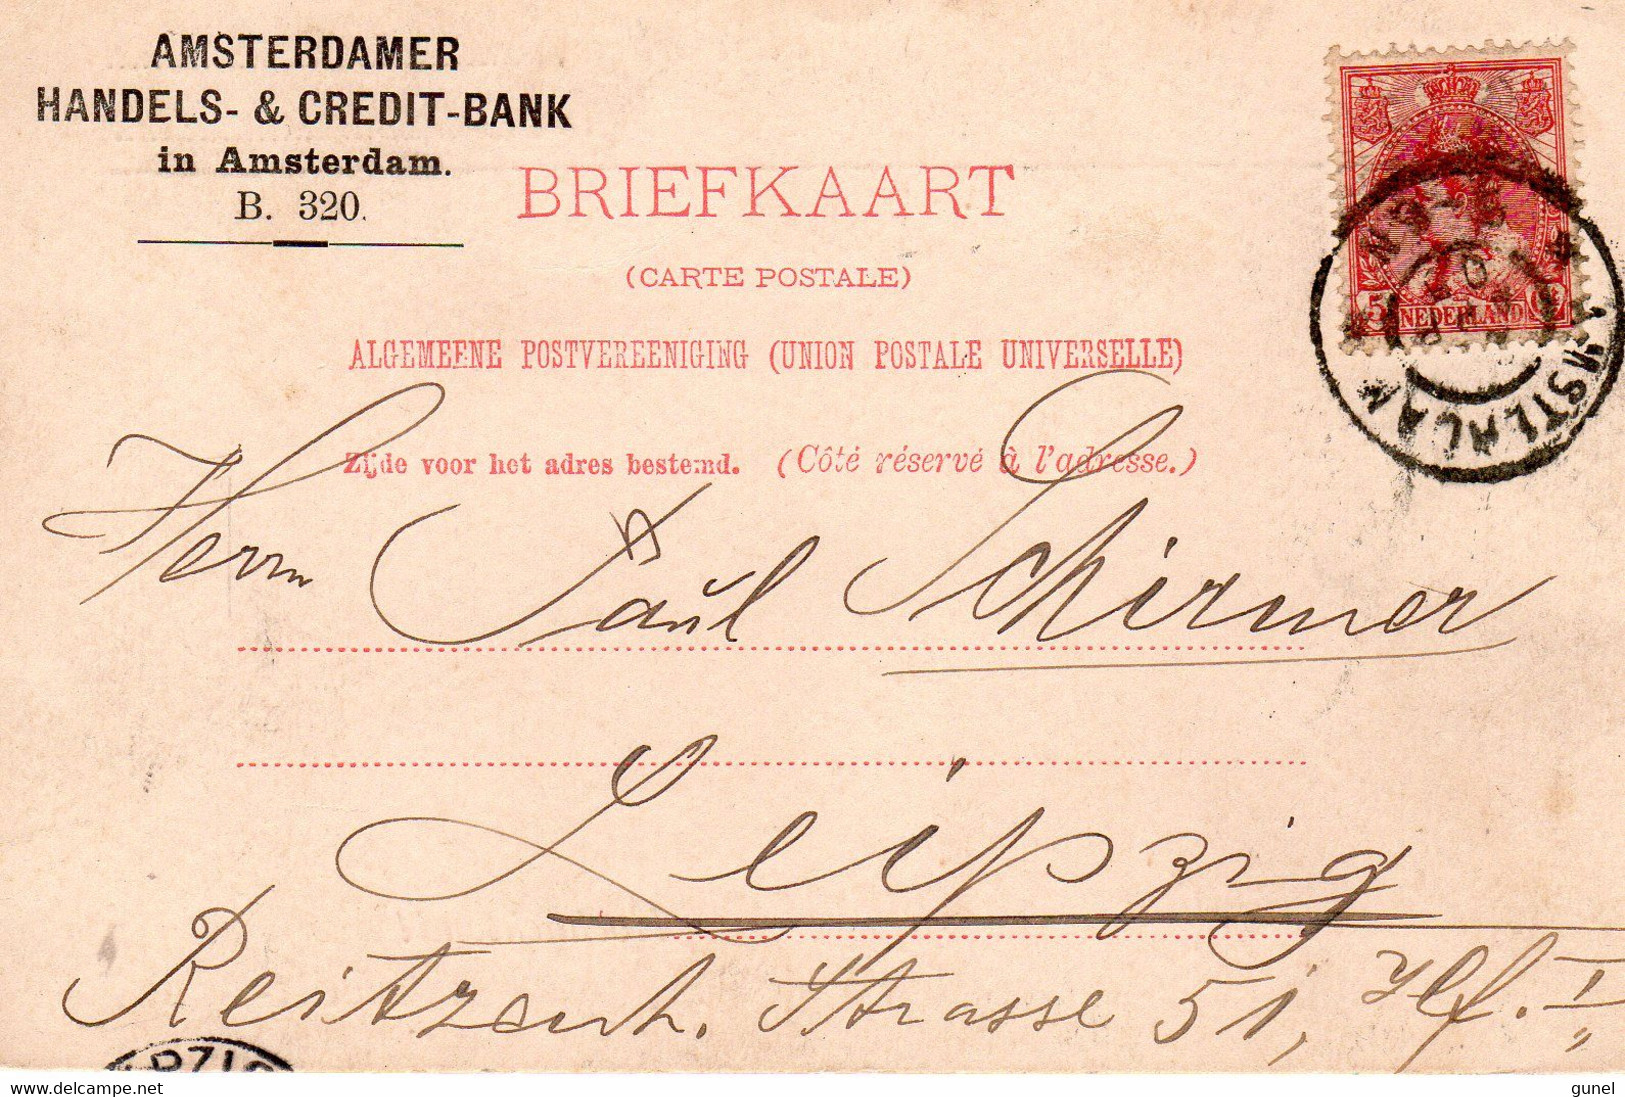 AMSTERDAMER
HANDELS- & CREDIT-BANK
in Amsterdam.
B. 320.
BRIEFKAART
(CARTE POSTALE)
ALGEMEENE POSTVEREENIGING (UNION POSTALE UNIVERSELLE)
Zijde voor het adres bestemd. (Côté réservé à l'adresse.)
5 Ct
NEDERLAND
Herrn Paul Schirmer
Leipzig
Strasse 51, Hf. I
gunel